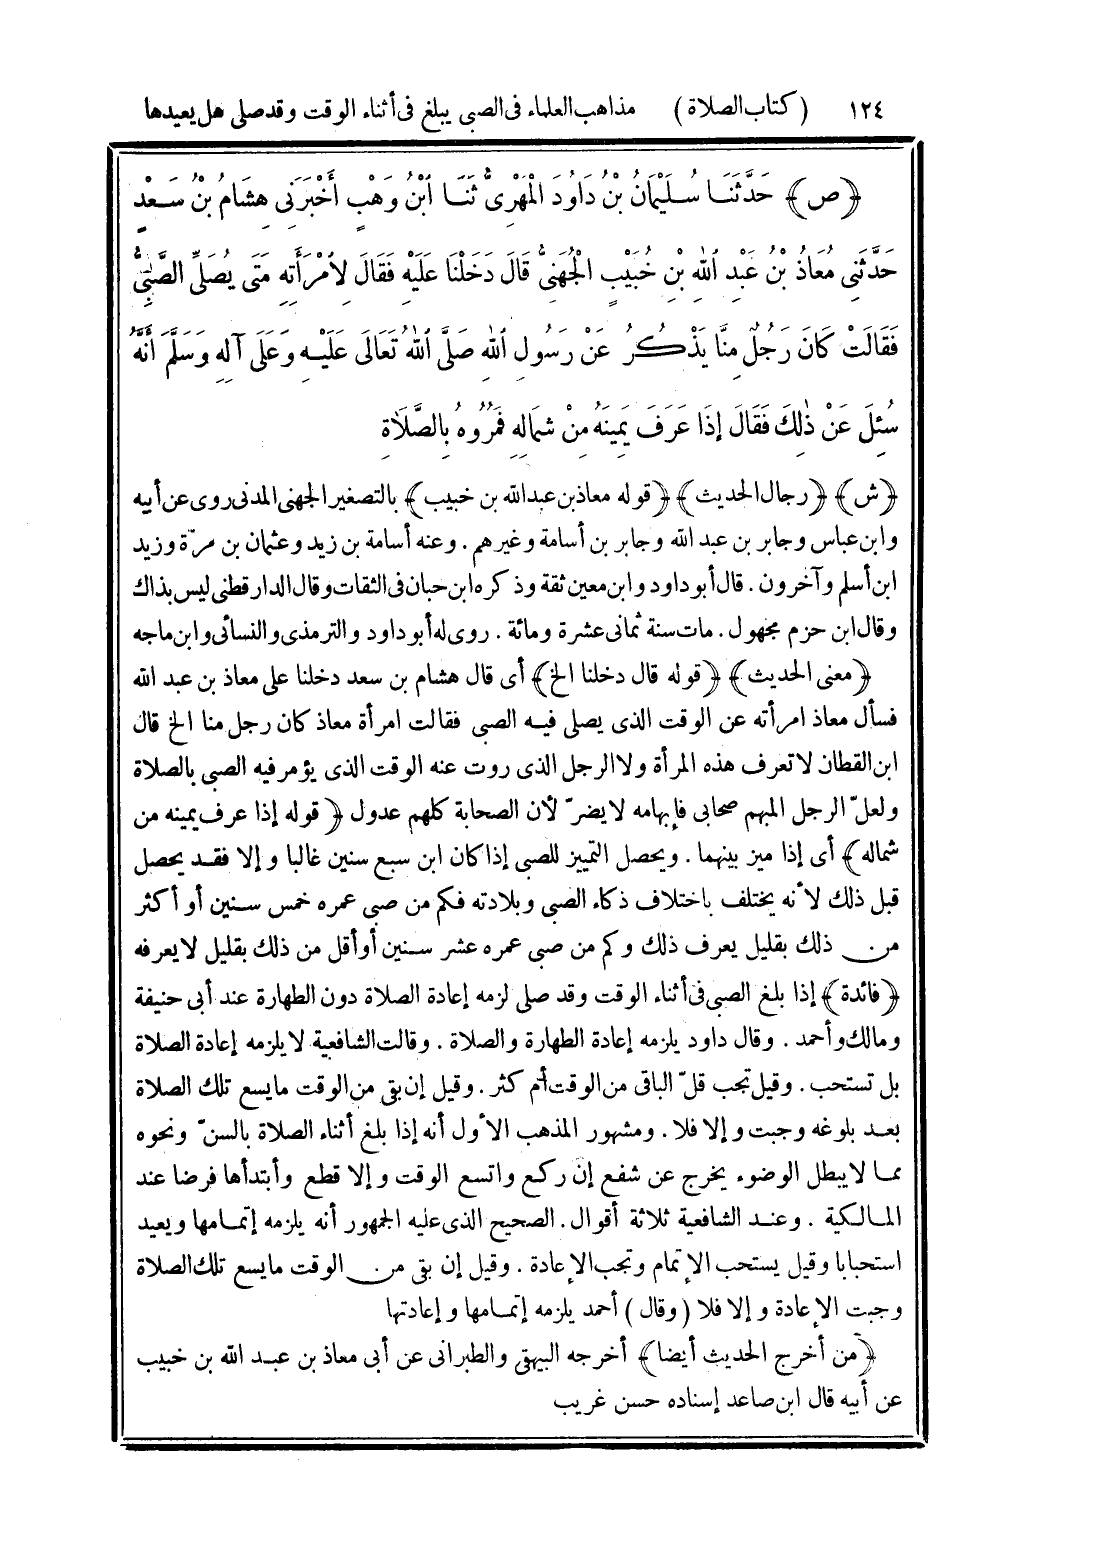 ١٢٤ (كتاب الصلاة) مذاهب العلماء فى الصبى يبلغ فى أثناء الوقت وقد صلى هل يعيدها
﴿ص﴾ حَدَّثَنَا سُلَيْمَانُ بْنُ دَاوُدَ الْمَهْرِىُّ ثَنَا ابْنُ وَهْبٍ أَخْبَرَنِى هِشَامُ بْنُ سَعْدٍ
حَدَّثَنِى مُعَاذُ بْنُ عَبْدِ اللهِ بْنِ خُبَيْبٍ الْجُهَنِىُّ قَالَ دَخَلْنَا عَلَيْهِ فَقَالَ لِامْرَأَتِهِ مَتَى يُصَلِّى الصَّبِىُّ
فَقَالَتْ كَانَ رَجُلٌ مِنَّا يَذْكُرُ عَنْ رَسُولِ اللهِ صَلَّى اللهُ تَعَالَى عَلَيْهِ وَعَلَى آلِهِ وَسَلَّمَ أَنَّهُ
سُئِلَ عَنْ ذٰلِكَ فَقَالَ إِذَا عَرَفَ يَمِينَهُ مِنْ شِمَالِهِ فَمُرُوهُ بِالصَّلَاةِ
﴿ش﴾ ﴿رجال الحديث﴾ ﴿قوله معاذ بن عبد الله بن خبيب﴾ بالتصغير الجهنى المدنى روى عن أبيه
وابن عباس وجابر بن عبد الله وجابر بن أسامة وغيرهم . وعنه أسامة بن زيد وعثمان بن مرّة وزيد
ابن أسلم وآخرون . قال أبو داود وابن معين ثقة وذكره ابن حبان فى الثقات وقال الدار قطنى ليس بذاك
وقال ابن حزم مجهول . مات سنة ثمانى عشرة ومائة . روى له أبو داود والترمذى والنسائى وابن ماجه
﴿معنى الحديث﴾ ﴿قوله قال دخلنا الخ﴾ أى قال هشام بن سعد دخلنا على معاذ بن عبد الله
فسأل معاذ امرأته عن الوقت الذى يصلى فيه الصبى فقالت امرأة معاذ كان رجل منا الخ قال
ابن القطان لا تعرف هذه المرأة ولا الرجل الذى روت عنه الوقت الذى يؤمر فيه الصبى بالصلاة
ولعلّ الرجل المبهم صحابى فإبهامه لا يضرّ لأن الصحابة كلهم عدول ﴿قوله إذا عرف يمينه من
شماله﴾ أى إذا ميز بينهما . ويحصل التمييز للصبى إذا كان ابن سبع سنين غالبا وإلا فقد يحصل
قبل ذلك لأنه يختلف باختلاف ذكاء الصبى وبلادته فكم من صبى عمره خمس سنين أو أكثر
من ذلك بقليل يعرف ذلك وكم من صبى عمره عشر سنين أو أقل من ذلك بقليل لا يعرفه
﴿فائدة﴾ إذا بلغ الصبى فى أثناء الوقت وقد صلى لزمه إعادة الصلاة دون الطهارة عند أبى حنيفة
ومالك وأحمد . وقال داود يلزمه إعادة الطهارة والصلاة . وقالت الشافعية لا يلزمه إعادة الصلاة
بل تستحب . وقيل تجب قلّ الباقى من الوقت أم كثر . وقيل إن بقى من الوقت ما يسع تلك الصلاة
بعد بلوغه وجبت وإلا فلا . ومشهور المذهب الأول أنه إذا بلغ أثناء الصلاة بالسنّ ونحوه
مما لا يبطل الوضوء يخرج عن شفع إن ركع واتسع الوقت وإلا قطع وأبتدأها فرضا عند
المالكية . وعند الشافعية ثلاثة أقوال . الصحيح الذى عليه الجمهور أنه يلزمه إتمامها ويعيد
استحبابا وقيل يستحب الإتمام وتجب الإعادة . وقيل إن بقى من الوقت ما يسع تلك الصلاة
وجبت الإعادة وإلا فلا (وقال) أحمد يلزمه إتمامها وإعادتها
﴿من أخرج الحديث أيضا﴾ أخرجه البيهقى والطبرانى عن أبى معاذ بن عبد الله بن خبيب
عن أبيه قال ابن صاعد إسناده حسن غريب